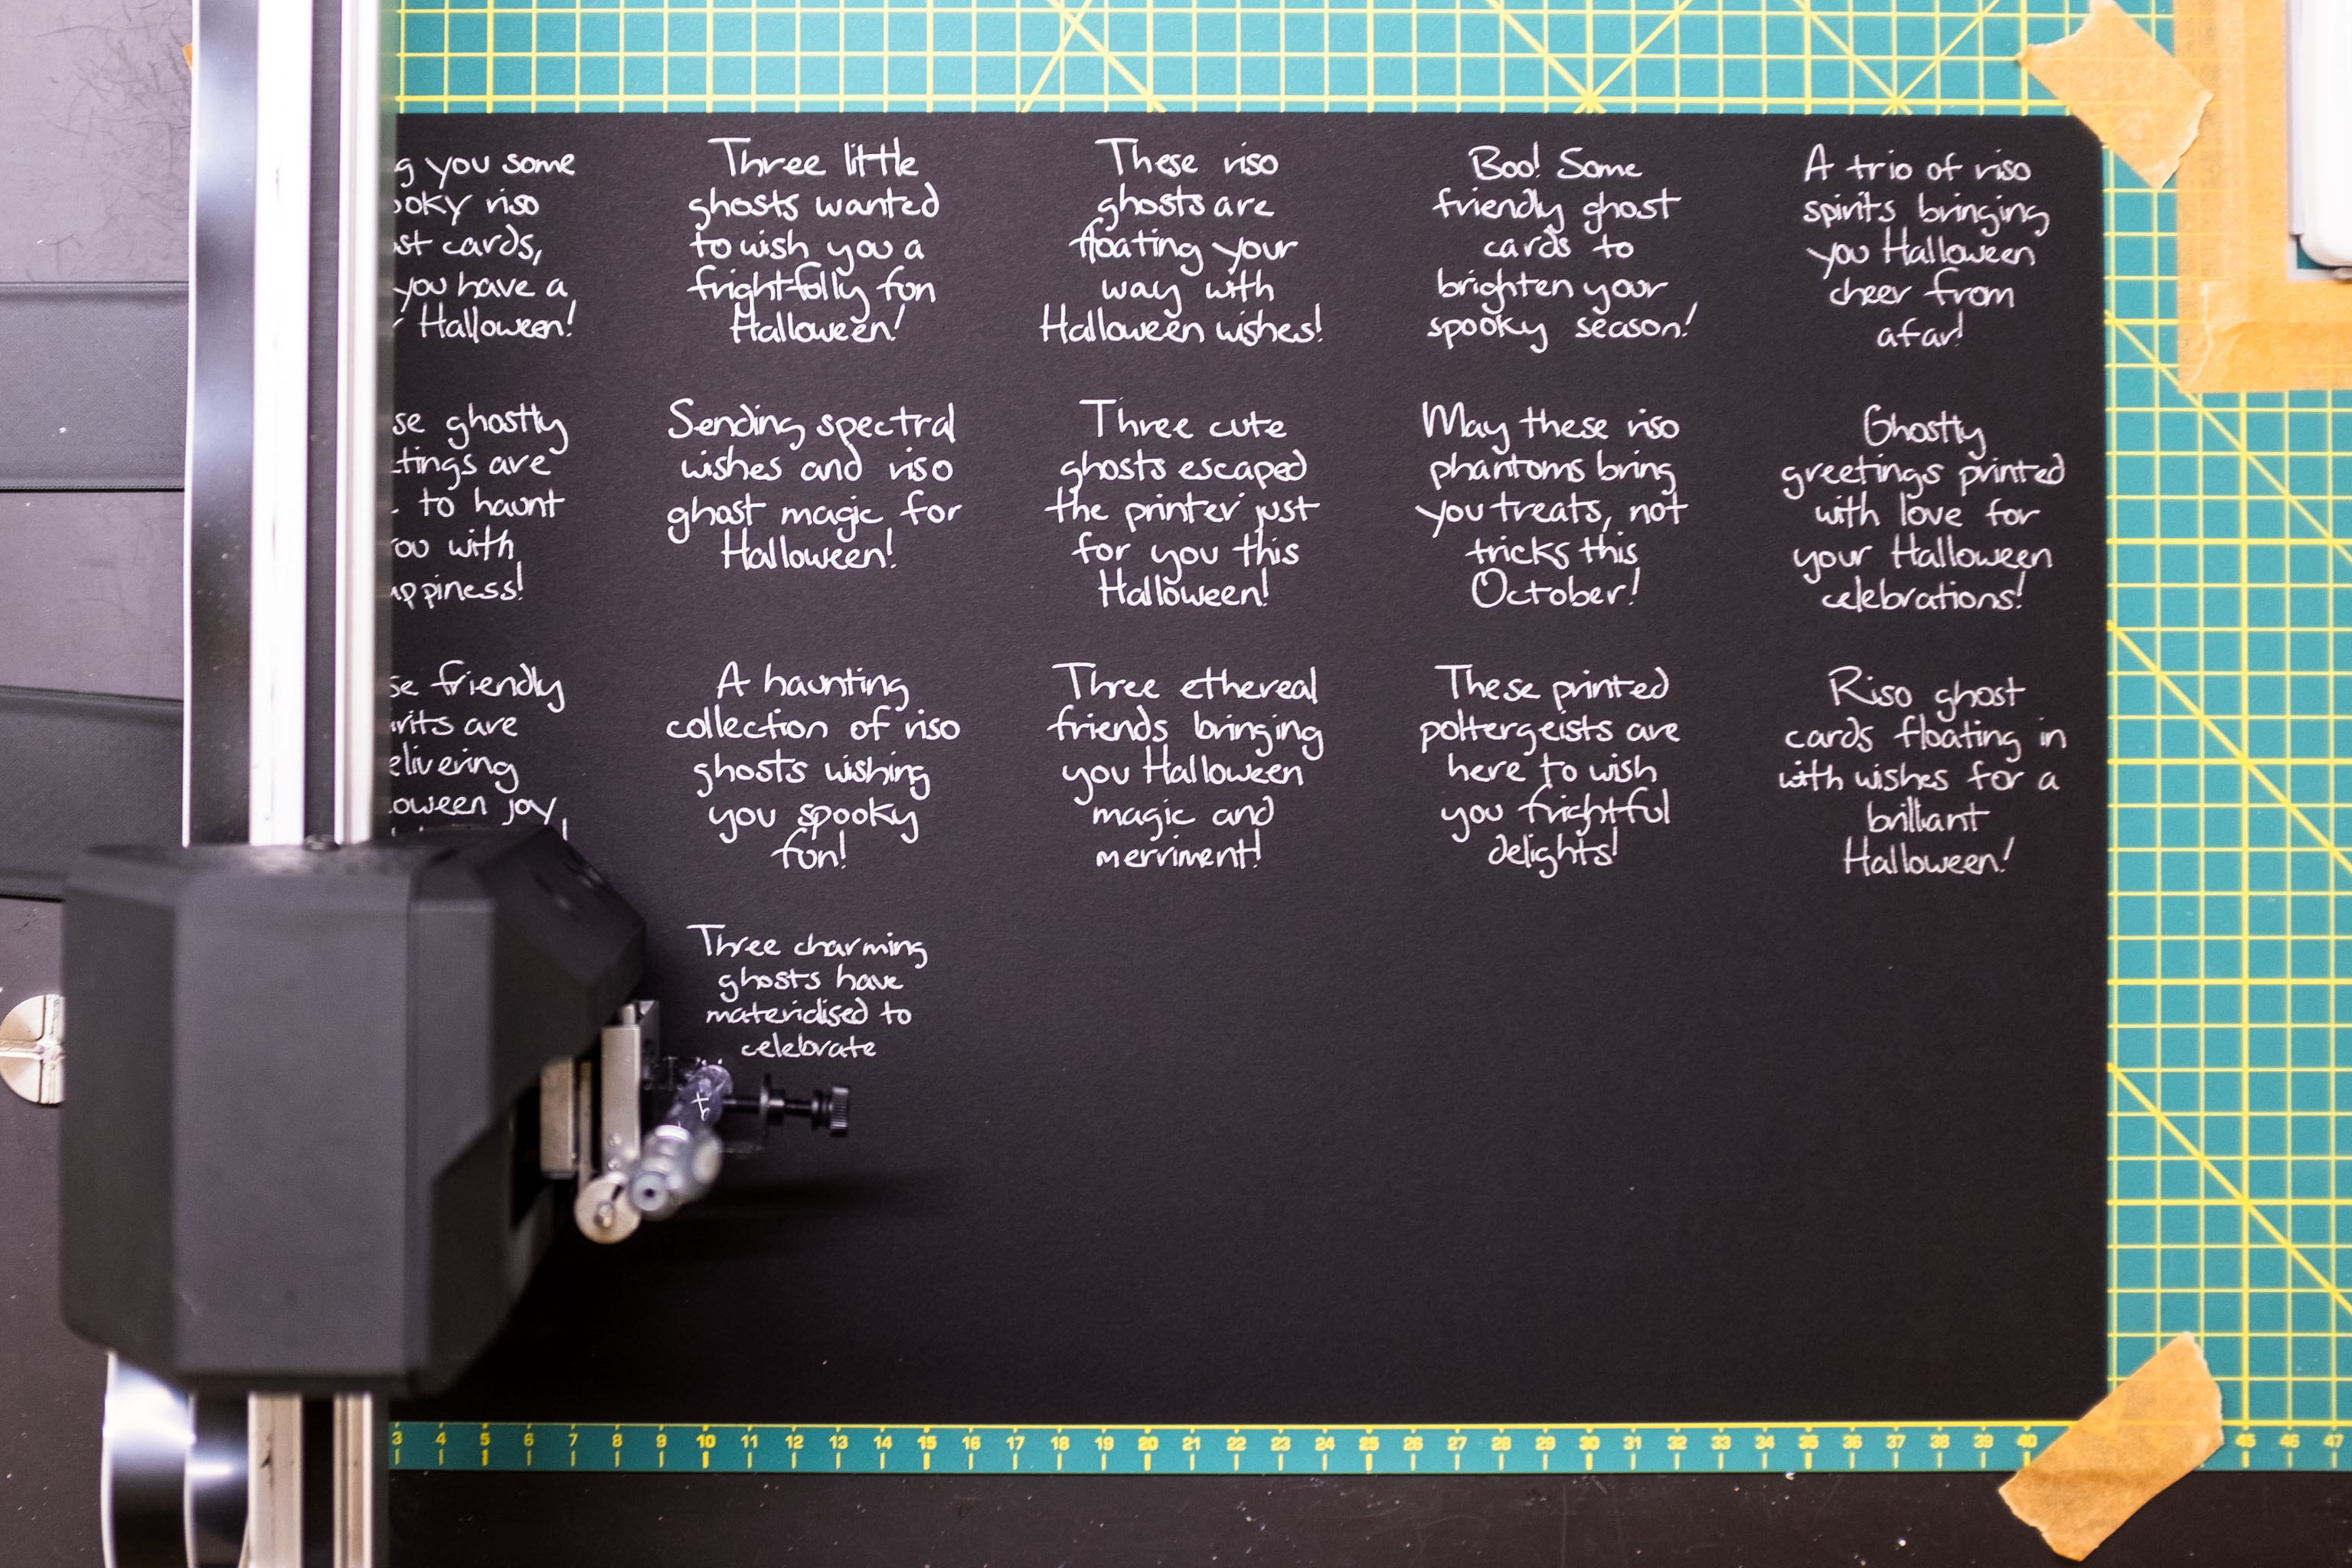 you some
riso
cards,
you have a
Halloween!
Three little
ghosts wanted
to wish you a
frightfully fun
Halloween!
These riso
ghosts are
floating your
way with
Halloween wishes!
Boo! Some
friendly ghost
cards to
brighten your
spooky season!
A trio of riso
spirits bringing
you Halloween
cheer from
afar!
ghostly
are
to haunt
with
Sending spectral
wishes and riso
ghost magic for
Halloween!
Three cute
ghosts escaped
the printer just
for you this
Halloween!
May these riso
phantoms bring
you treats, not
tricks this
October!
Ghostly
greetings printed
with love for
your Halloween
celebrations!
friendly
are
joy
A haunting
collection of riso
ghosts wishing
you spooky
fun!
Three ethereal
friends bringing
you Halloween
magic and
merriment!
These printed
poltergeists are
here to wish
you frightful
delights!
Riso ghost
cards floating in
with wishes for a
brilliant
Halloween!
Three charming
ghosts have
materialised to
celebrate
3 4 5 6 7 8 9 10 11 12 13 14 15 16 17 18 19 20 21 22 23 24 25 26 27 28 29 30 31 32 33 34 35 36 37 38 39 40 45 46 47